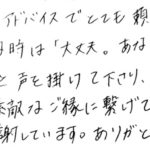 アドバイスでとても頼
時は「大丈夫。あな
と声を掛けて下さり、
敵なご縁に繋げて
謝しています。ありがと